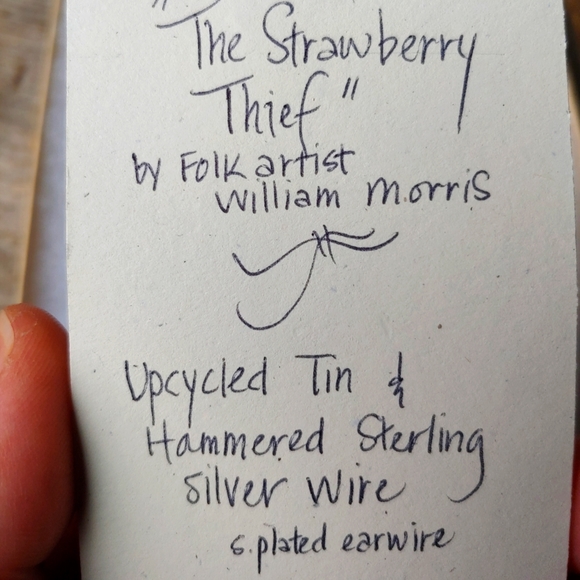 "The Strawberry
Thief"
by Folk artist
William Morris
Upcycled Tin &
Hammered Sterling
Silver Wire
s.plated earwire